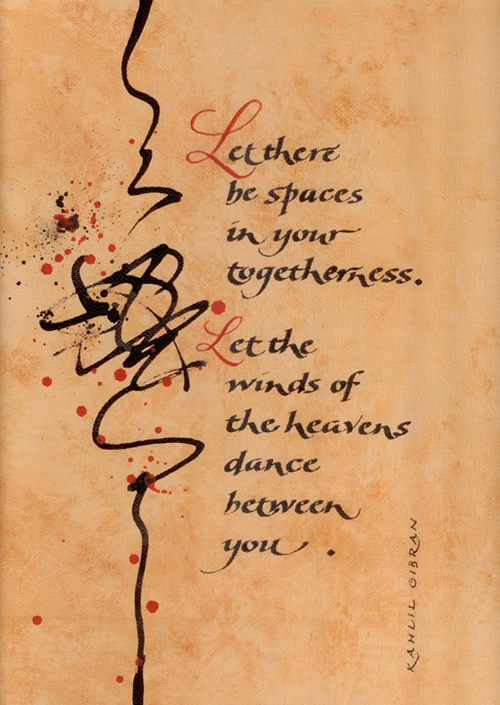 Let there
be spaces
in your
togetherness.
Let the
winds of
the heavens
dance
between
you .
KAHLIL GIBRAN